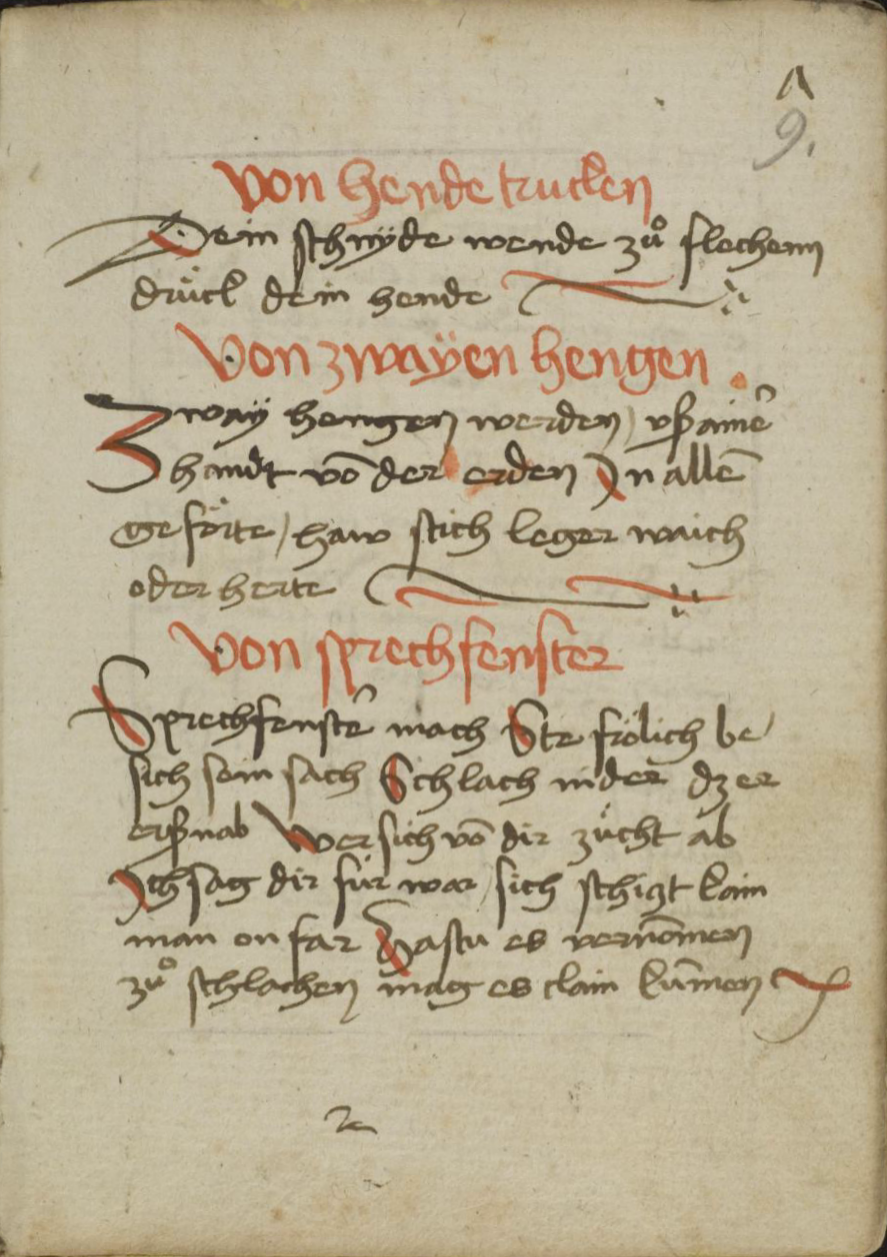 9.
Von hende trucken
Dein schnyde wende zuͦ flechenn
drück dein hende
Von zwaÿen hengen
Zwaÿ hengen werden / vß ainē
handt võ der erden In allē
geförte / haw stich leger waich
oder herte
Von sprechfenster
Sprechfenstē mach Ste frölich be
sich sein sach Schlach in der dz er
erßnab Wer sich võ dir zücht ab
Ich sag dir für war / sich schigt kain
man on far Hastu es vernõmen
zuͦ schlachen mag es clain kũmen